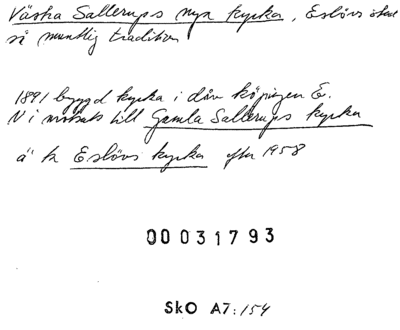 Västra Sallerups nya kyrka, Eslövs stad
så muntlig tradition
1891 byggd kyrka i dåv köpingen E.
N i motsats till Gamla Sallerups kyrka
ä" k Eslövs kyrka efter 1958
00031793
SkO A7:154